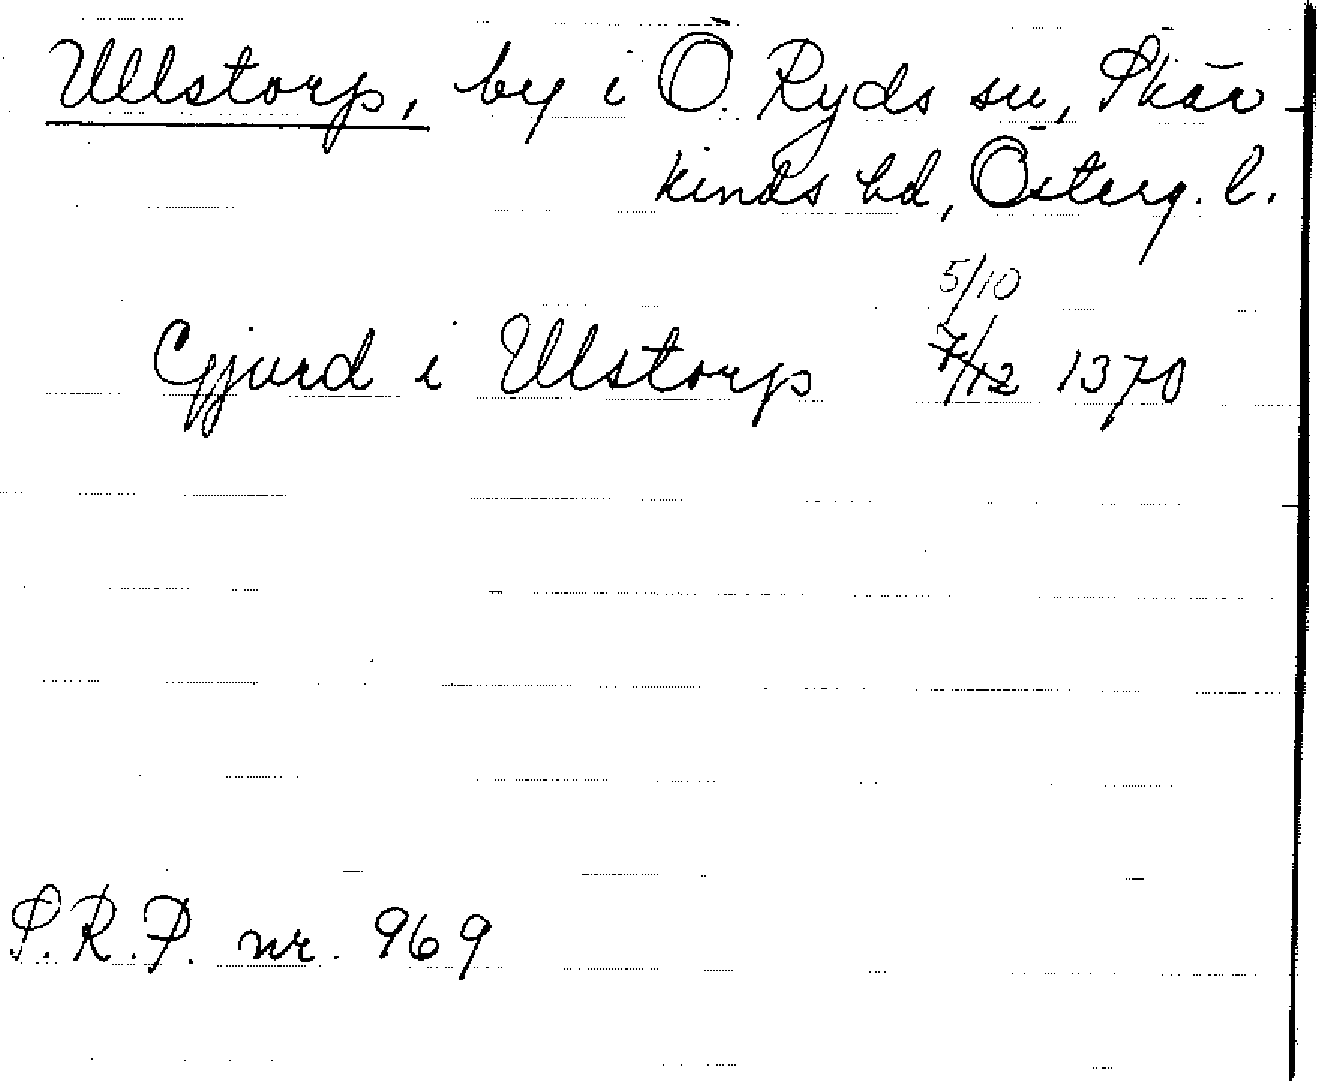 Ullstorp, by i Ö. Ryds sn, Skär-
kinds hd, Österg. l.
5/10
Gjurd i Ulstorp 7/12 1370
S.R.P. nr. 969